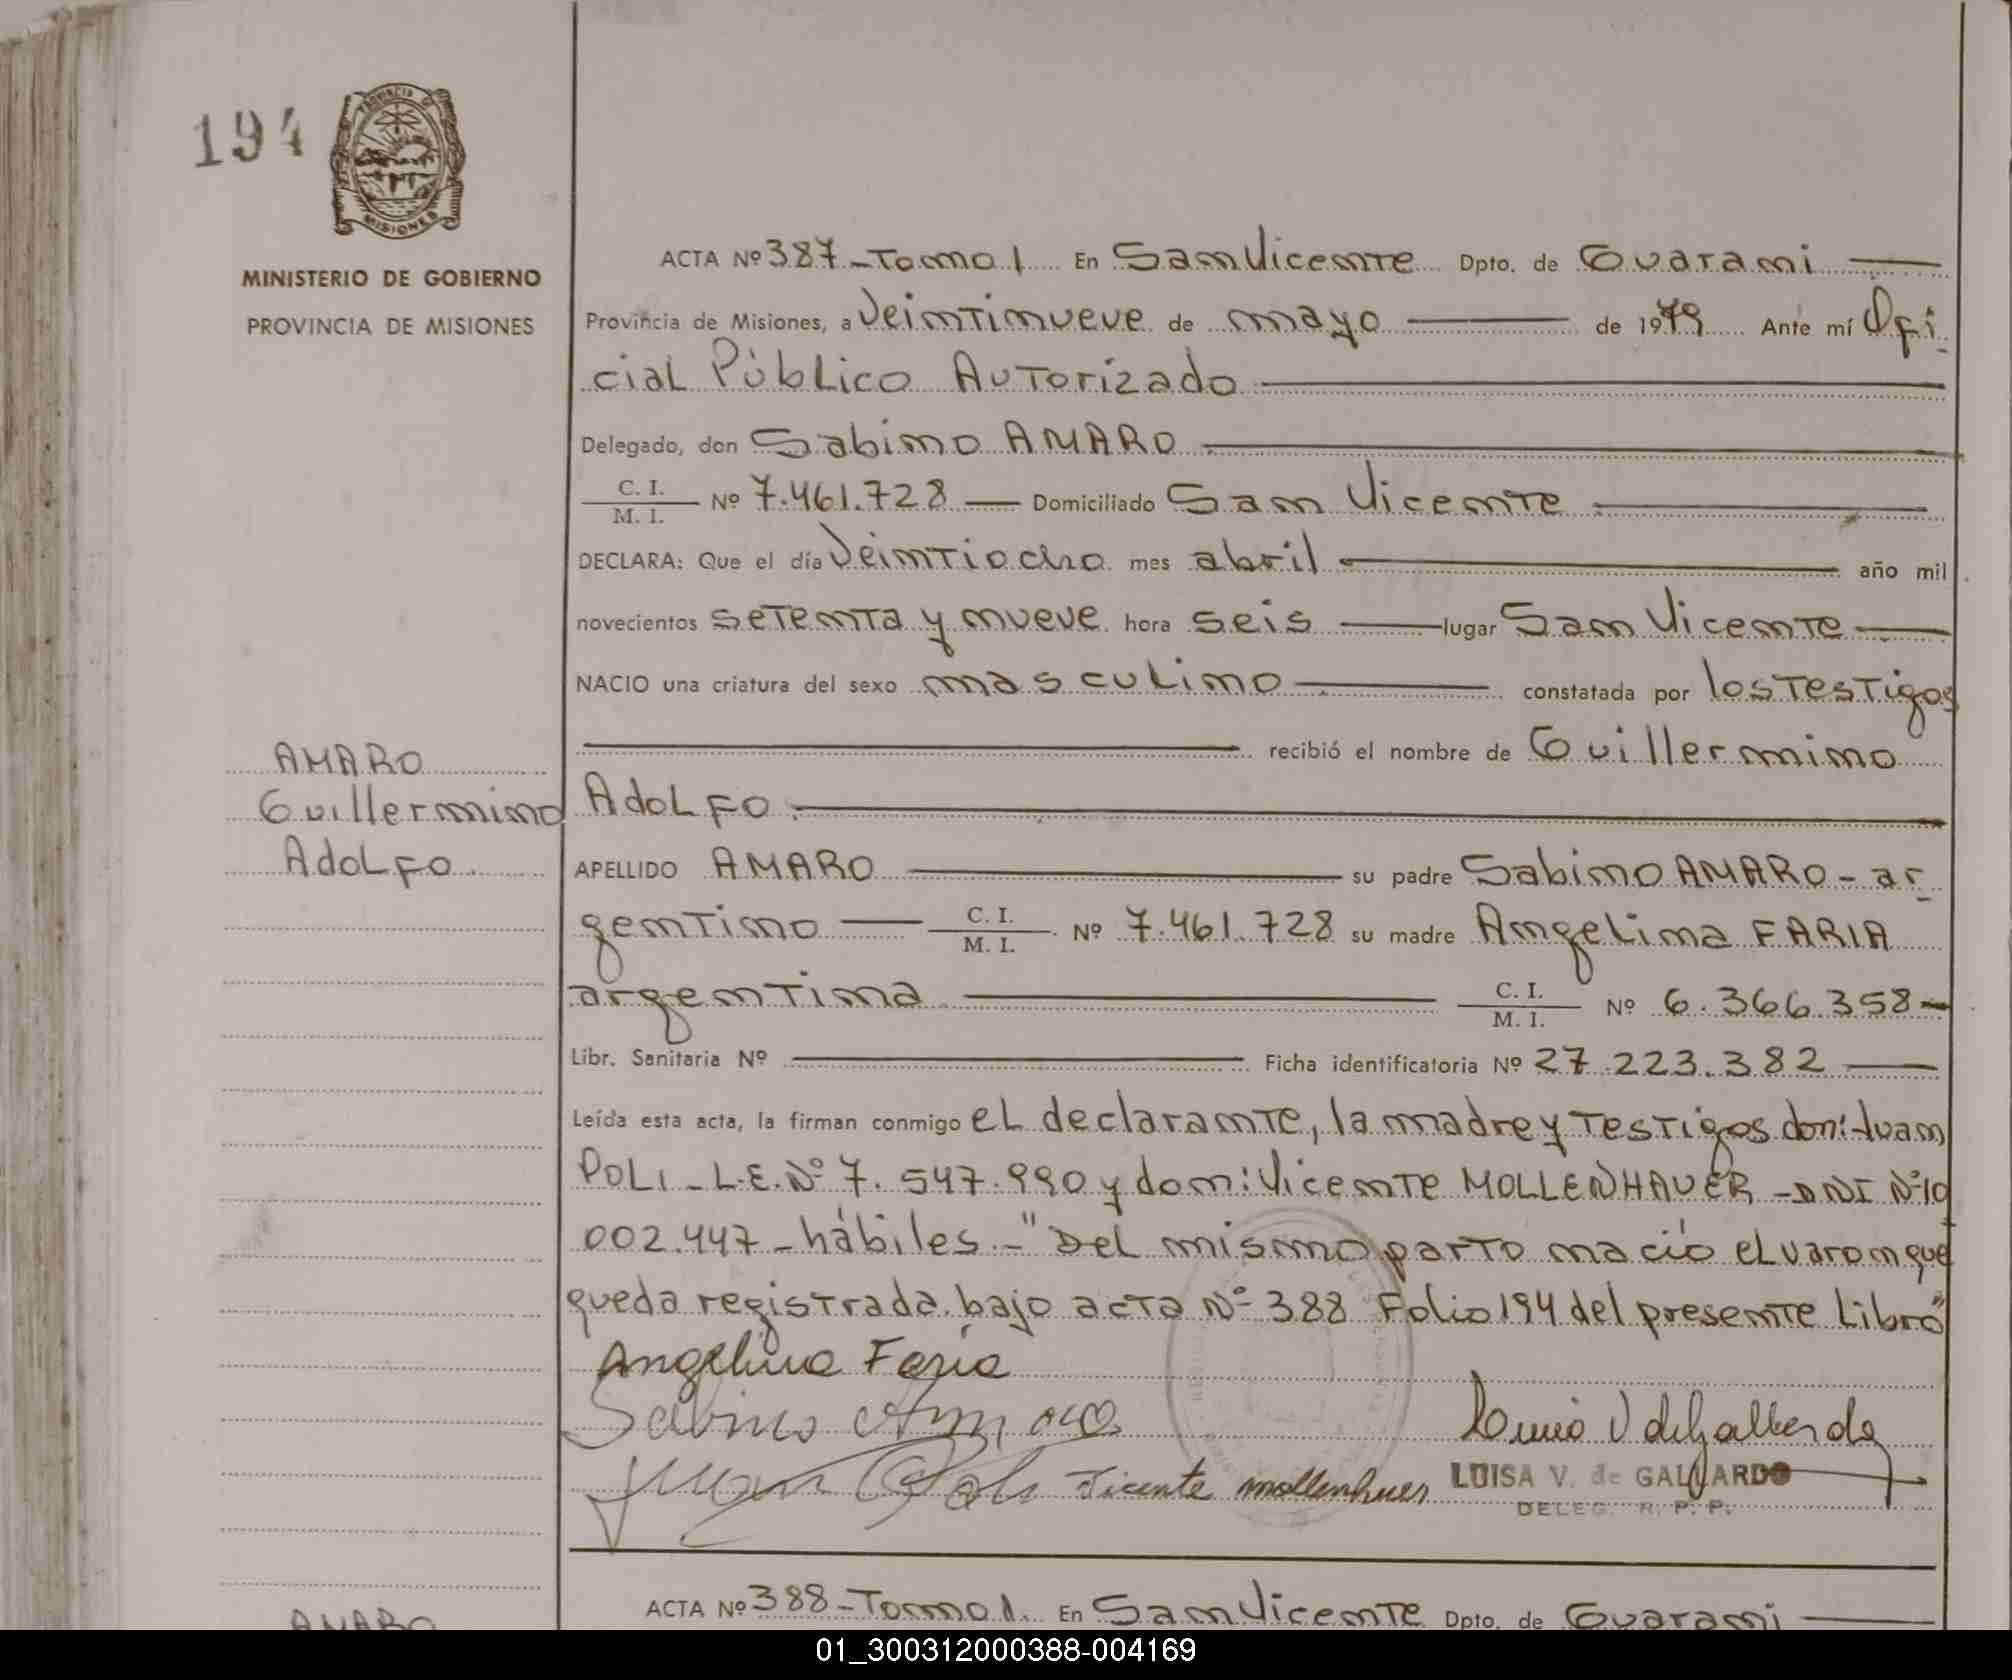 194
PROVINCIA DE
MISIONES
MINISTERIO DE GOBIERNO
PROVINCIA DE MISIONES
ACTA Nº 387 - Tomo 1 En San Vicente Dpto. de Guarani
Provincia de Misiones, a Veintinueve de mayo de 1979 Ante mí Ofi
cial Público Autorizado
Delegado, don Sabino AMARO
C. I.
M. I. Nº 7.461.728 — Domiciliado San Vicente
DECLARA: Que el día Veintiocho mes abril año mil
novecientos setenta y nueve hora seis lugar San Vicente
NACIO una criatura del sexo masculino constatada por los Testigos
recibió el nombre de Guillermino
Adolfo
AMARO
Guillermino
Adolfo
APELLIDO AMARO su padre Sabino AMARO - ar
gentino C. I.
M. I. Nº 7.461.728 su madre Angelina FARIA
argentina C. I.
M. I. Nº 6.366.358 -
Libr. Sanitaria Nº Ficha identificatoria Nº 27.223.382
Leída esta acta, la firman conmigo el declarante, la madre y Testigos don: Juan
POLI - L.E. Nº 7.547.990 y don: Vicente MOLLENHAUER - DNI Nº 10
002.447 - hábiles. - "Del mismo parto nació el varon que
queda registrada bajo acta Nº 388 Folio 194 del presente Libro"
Angelina Faria
Sabino Amaro
Juan Poli Vicente mollenhuer
LUISA V. de GALLARDO
DELEG. R. P. P.
ACTA Nº 388 - Tomo 1. En San Vicente Dpto. de Guarani
AMARO
01_300312000388-004169